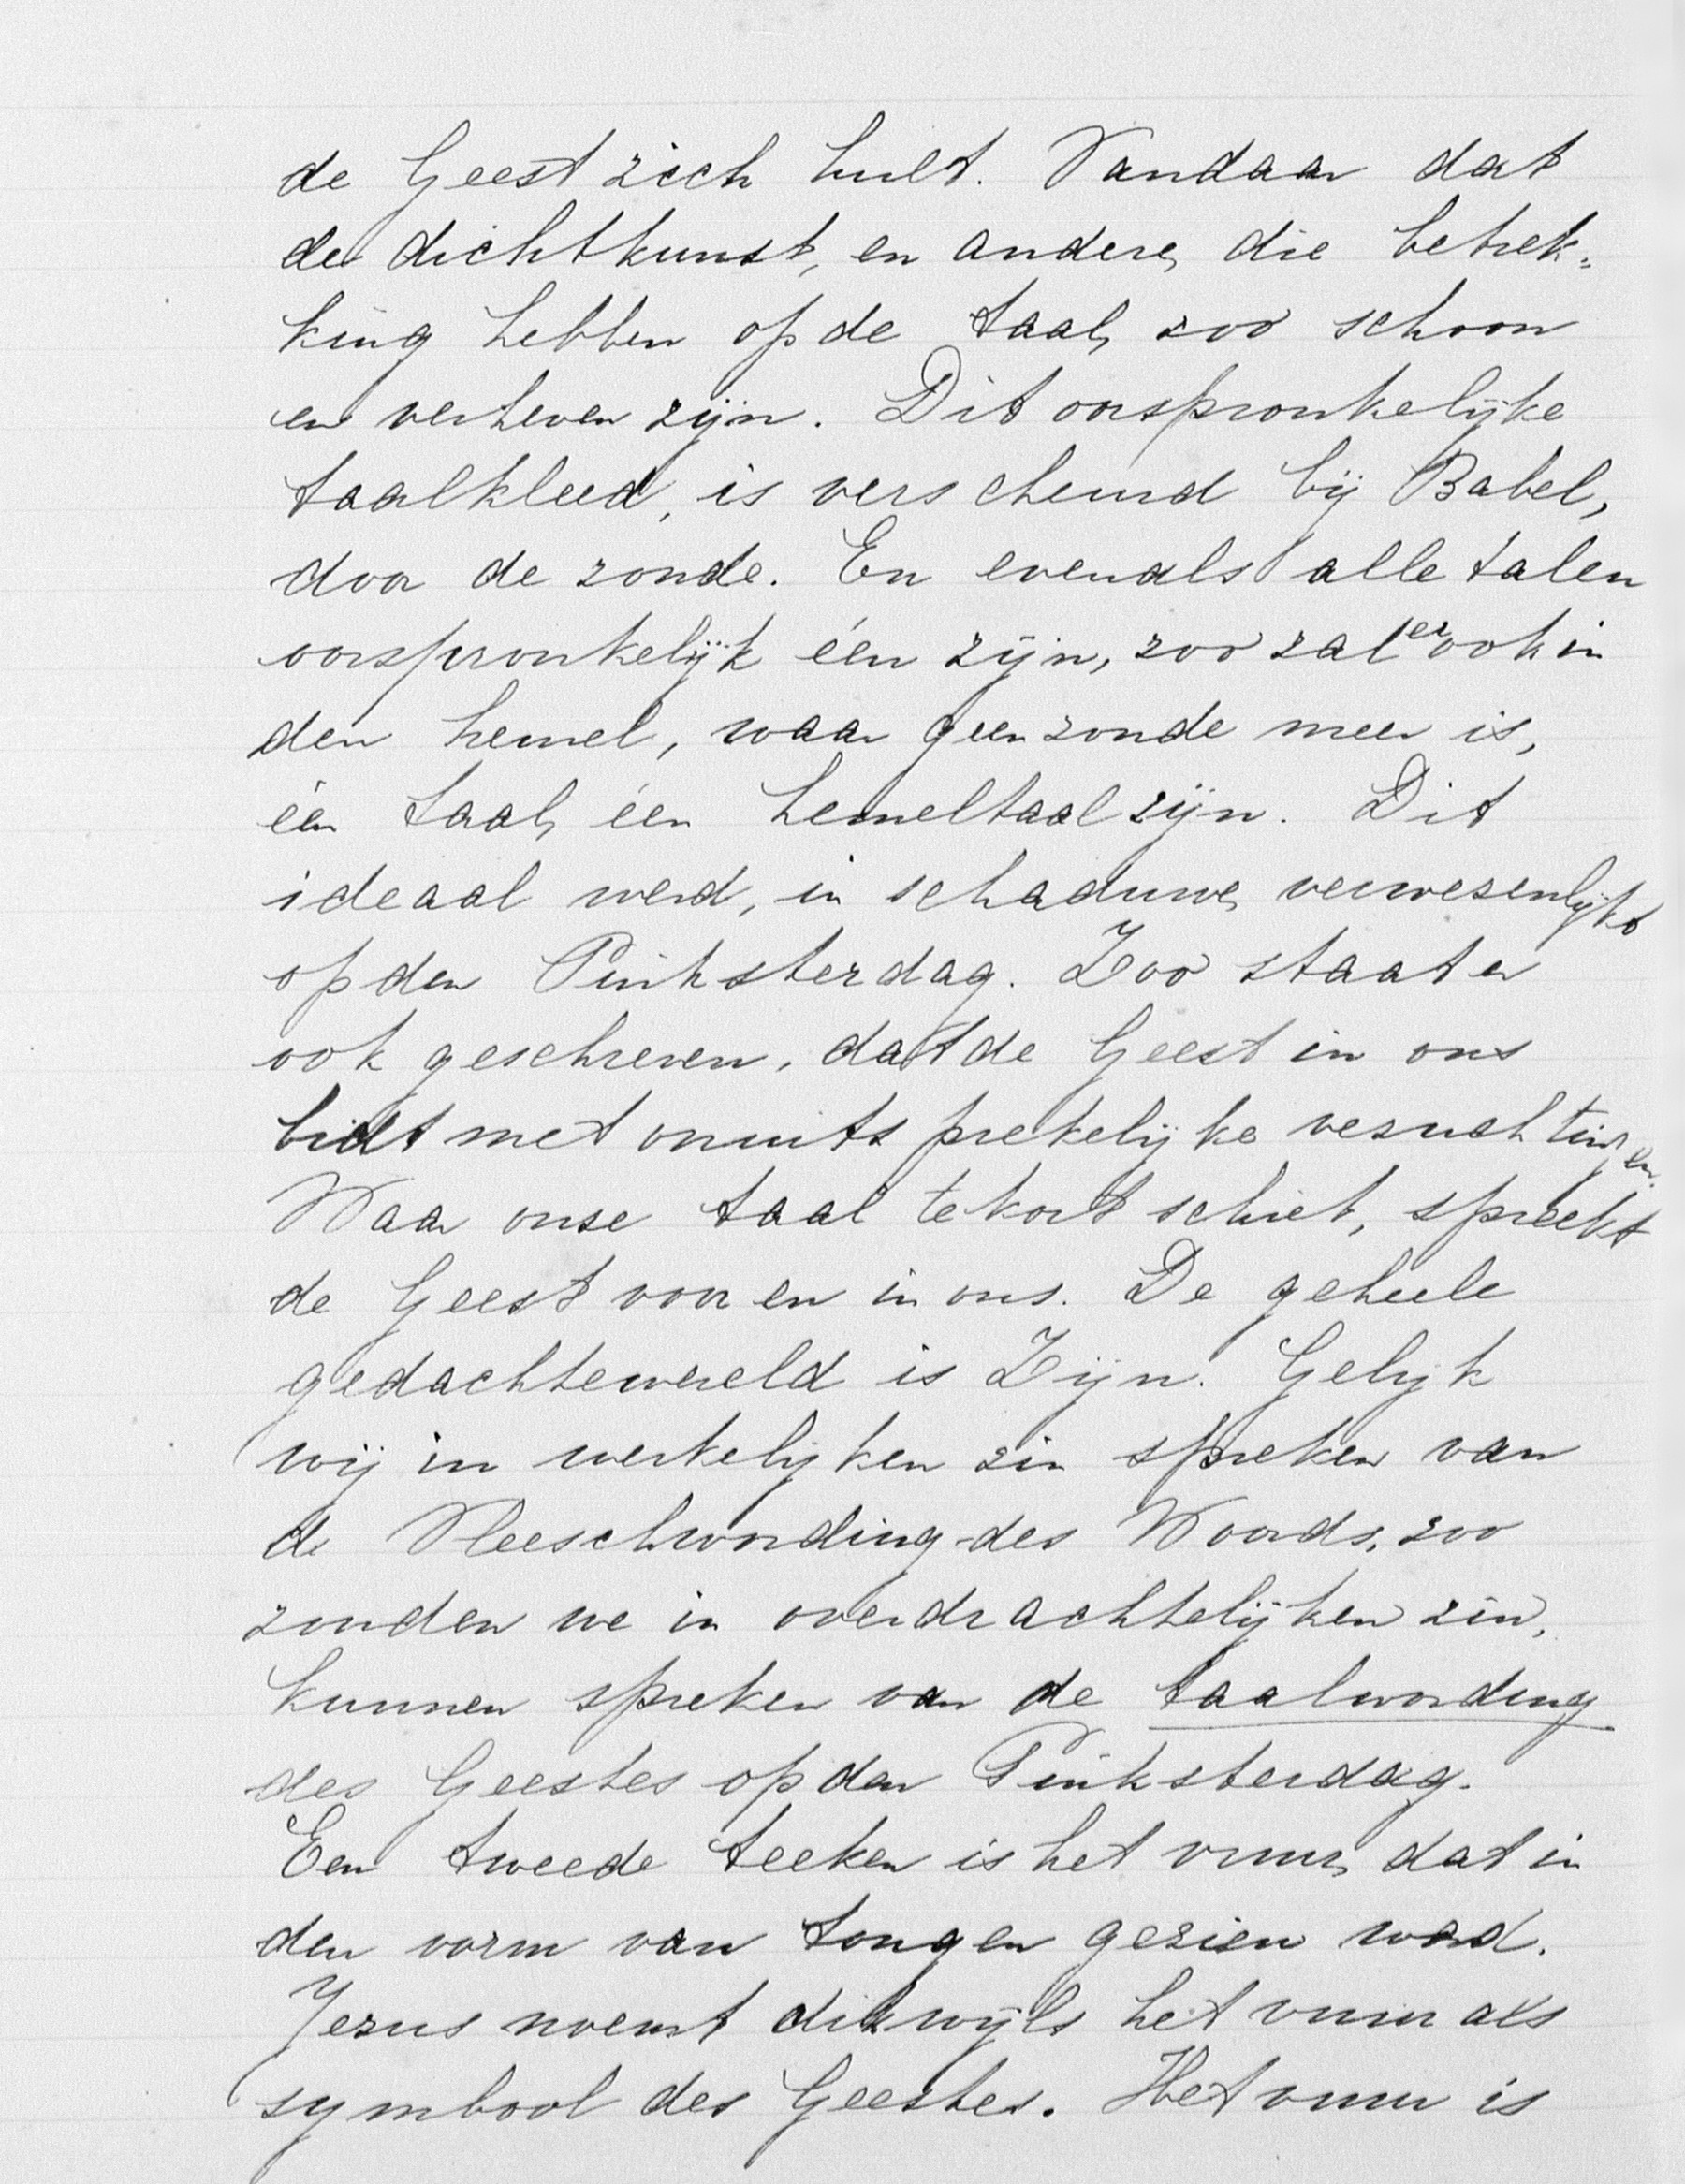 de Geest zich hult. Vandaar dat
de dichtkunst, en andere, die betrek=
king hebben op de taal, zoo schoon
en verheven zijn. Dit oorspronkelijke
taalkleed, is verscheurd bij Babel,
door de zonde. En evenals alle talen
oorspronkelijk één zijn, zoo zal er ook in
den hemel, waar geen zonde meer is,
één taal, één hemeltaal zijn. Dit
ideaal werd, in schaduwe, verwezenlijkt
op den Pinksterdag. Zoo staat er
ook geschreven, dat de Geest in ons
bidt met onuitsprekelijke verzuchtingen.
Waar onze taal tekort schiet, spreekt
de Geest voor en in ons. De geheele
gedachtewereld is Zijn. Gelijk
wij in werkelijken zin spreken van
de Vleeschwording des Woords, zoo
zouden we in overdrachtelijken zin,
kunnen spreken van de taalwording
des Geestes op den Pinksterdag.
Een tweede teeken is het vuur, dat in
den vorm van tongen gezien werd.
Jezus noemt dikwijls het vuur als
symbool des Geestes. Het vuur is